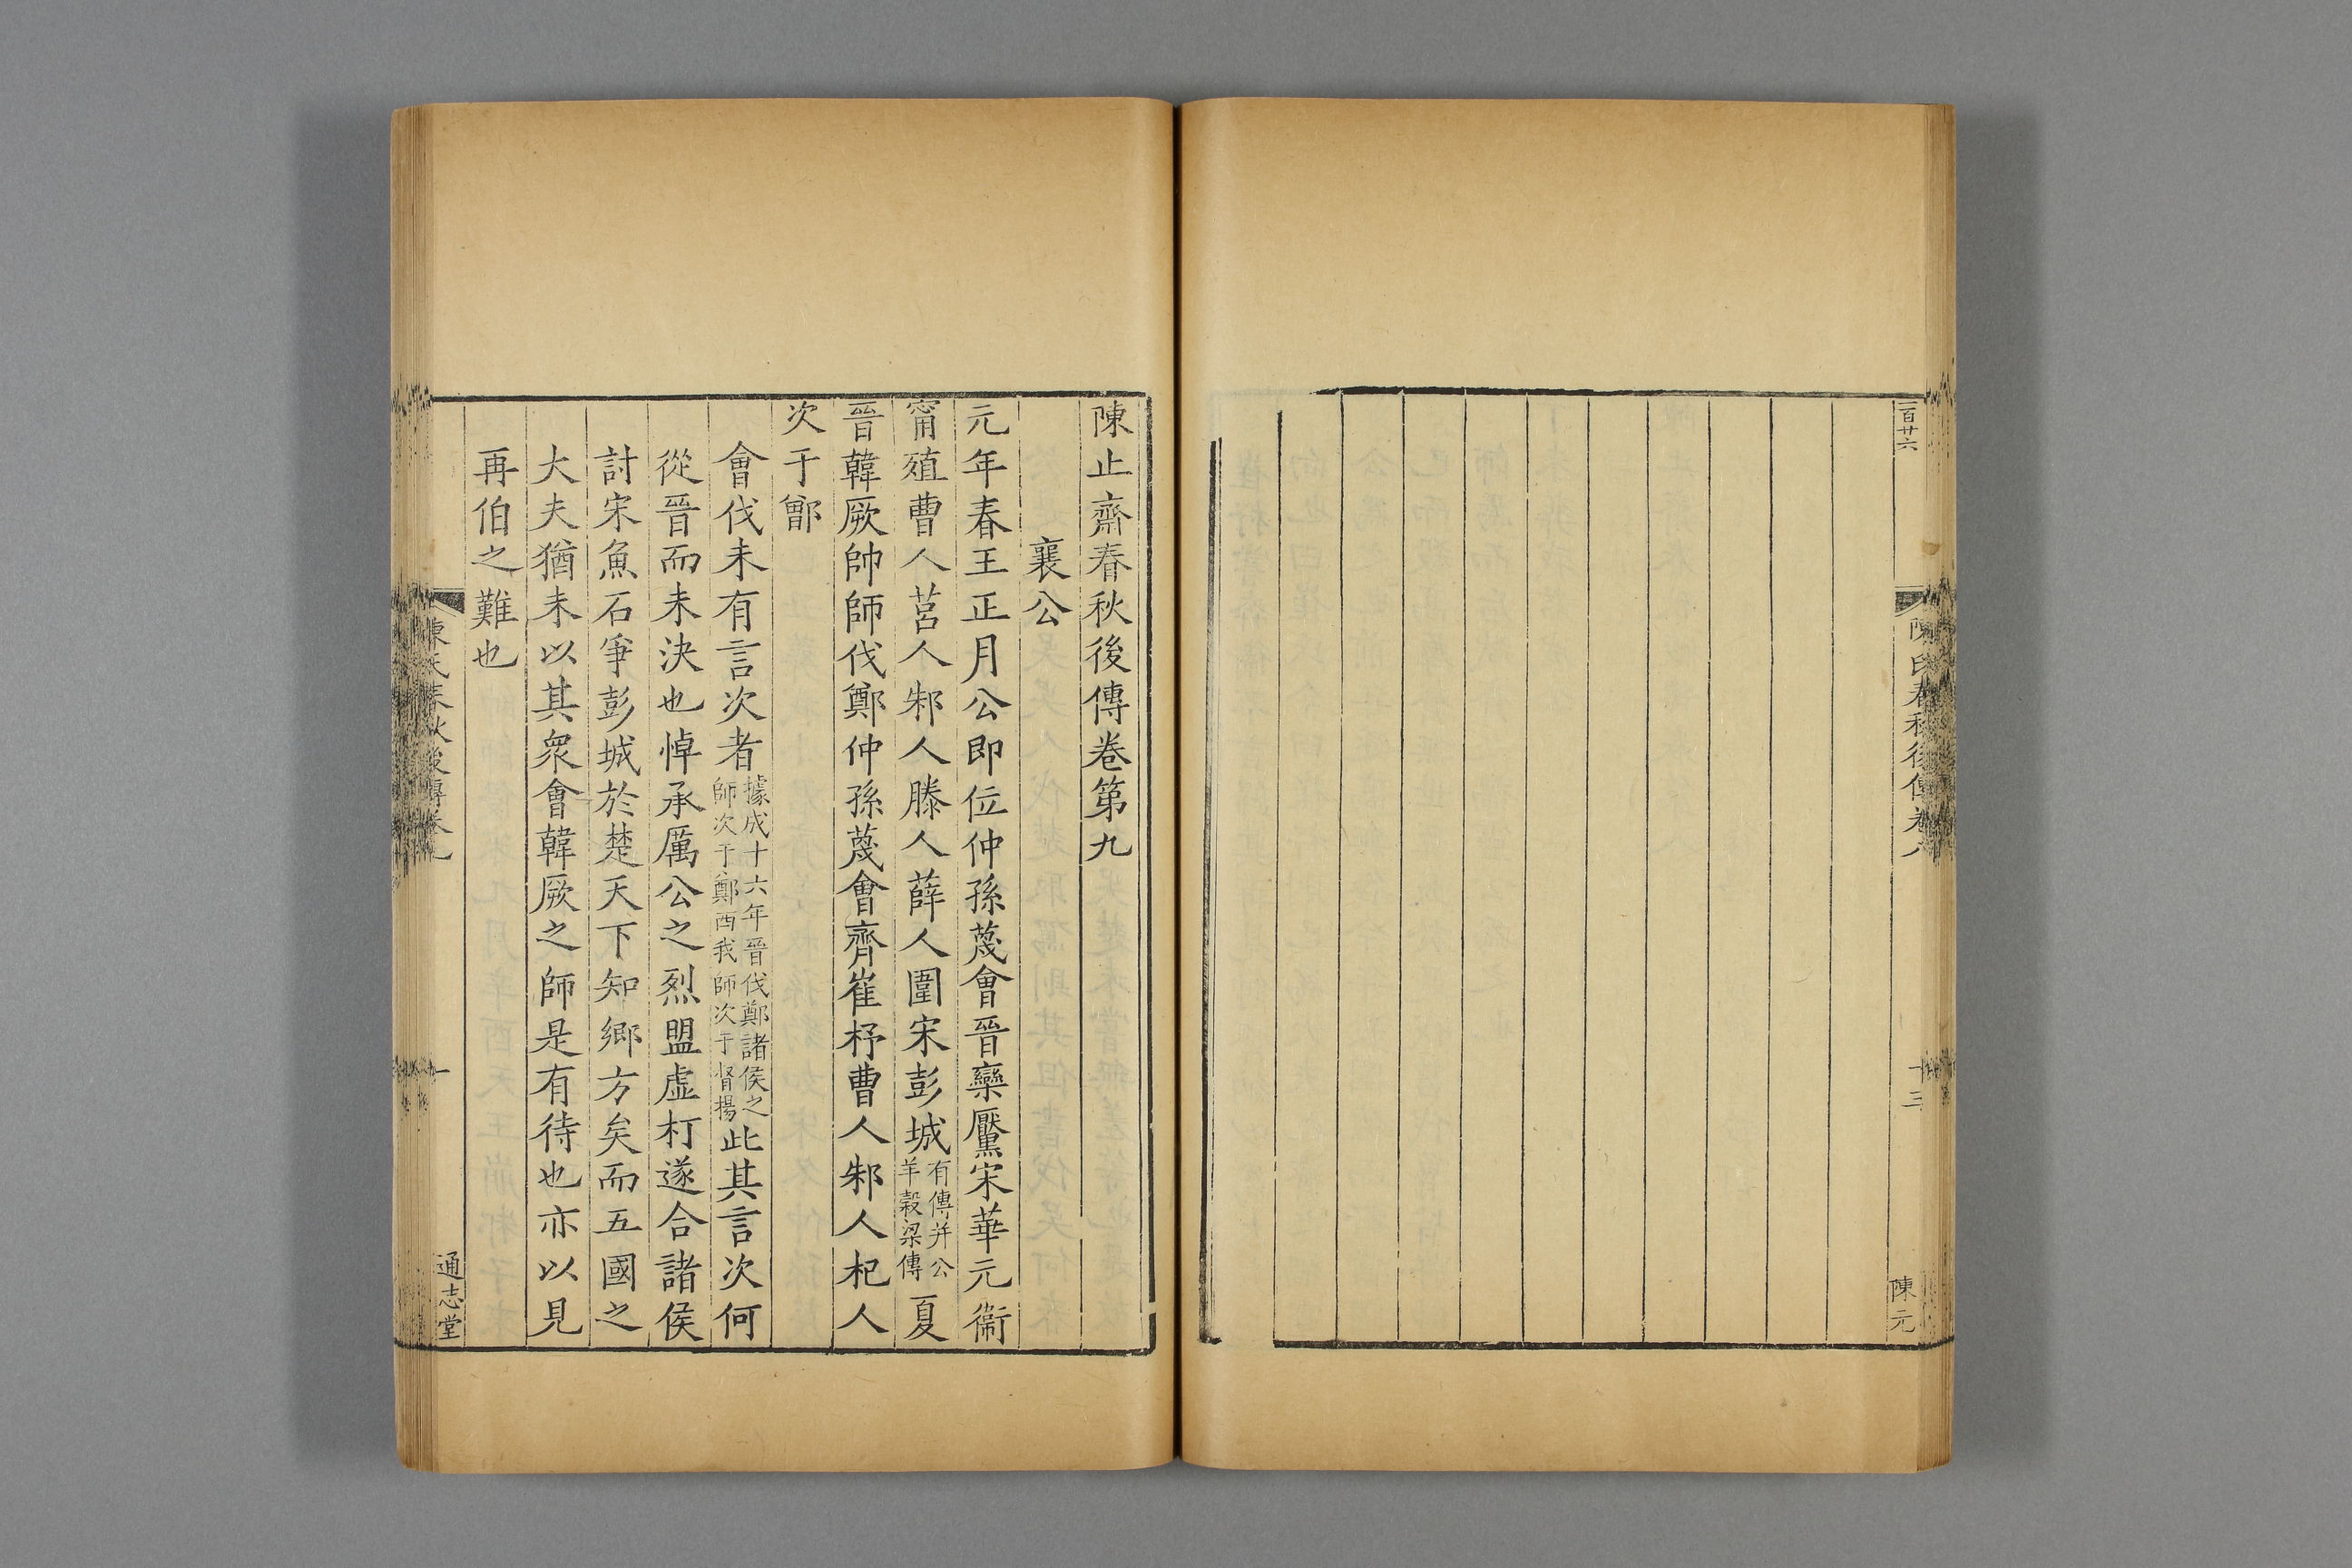 一百廿六
十三
陳元
陳止齋春秋後傳卷第九
襄公
元年春王正月公即位仲孫蔑會晉欒黶宋華元衞
甯殖曹人莒人邾人滕人薛人圍宋彭城有傳并公羊穀梁傳夏
晉韓厥帥師伐鄭仲孫蔑會齊崔杼曹人邾人杞人
次于鄫
會伐未有言次者據成十六年晉伐鄭諸侯之師次于鄭西我師次于督揚此其言次何
從晉而未決也悼承厲公之烈盟虛朾遂合諸侯
討宋魚石爭彭城於楚天下知鄉方矣而五國之
大夫猶未以其衆會韓厥之師是有待也亦以見
再伯之難也
陳氏春秋後傳卷九
一
通志堂